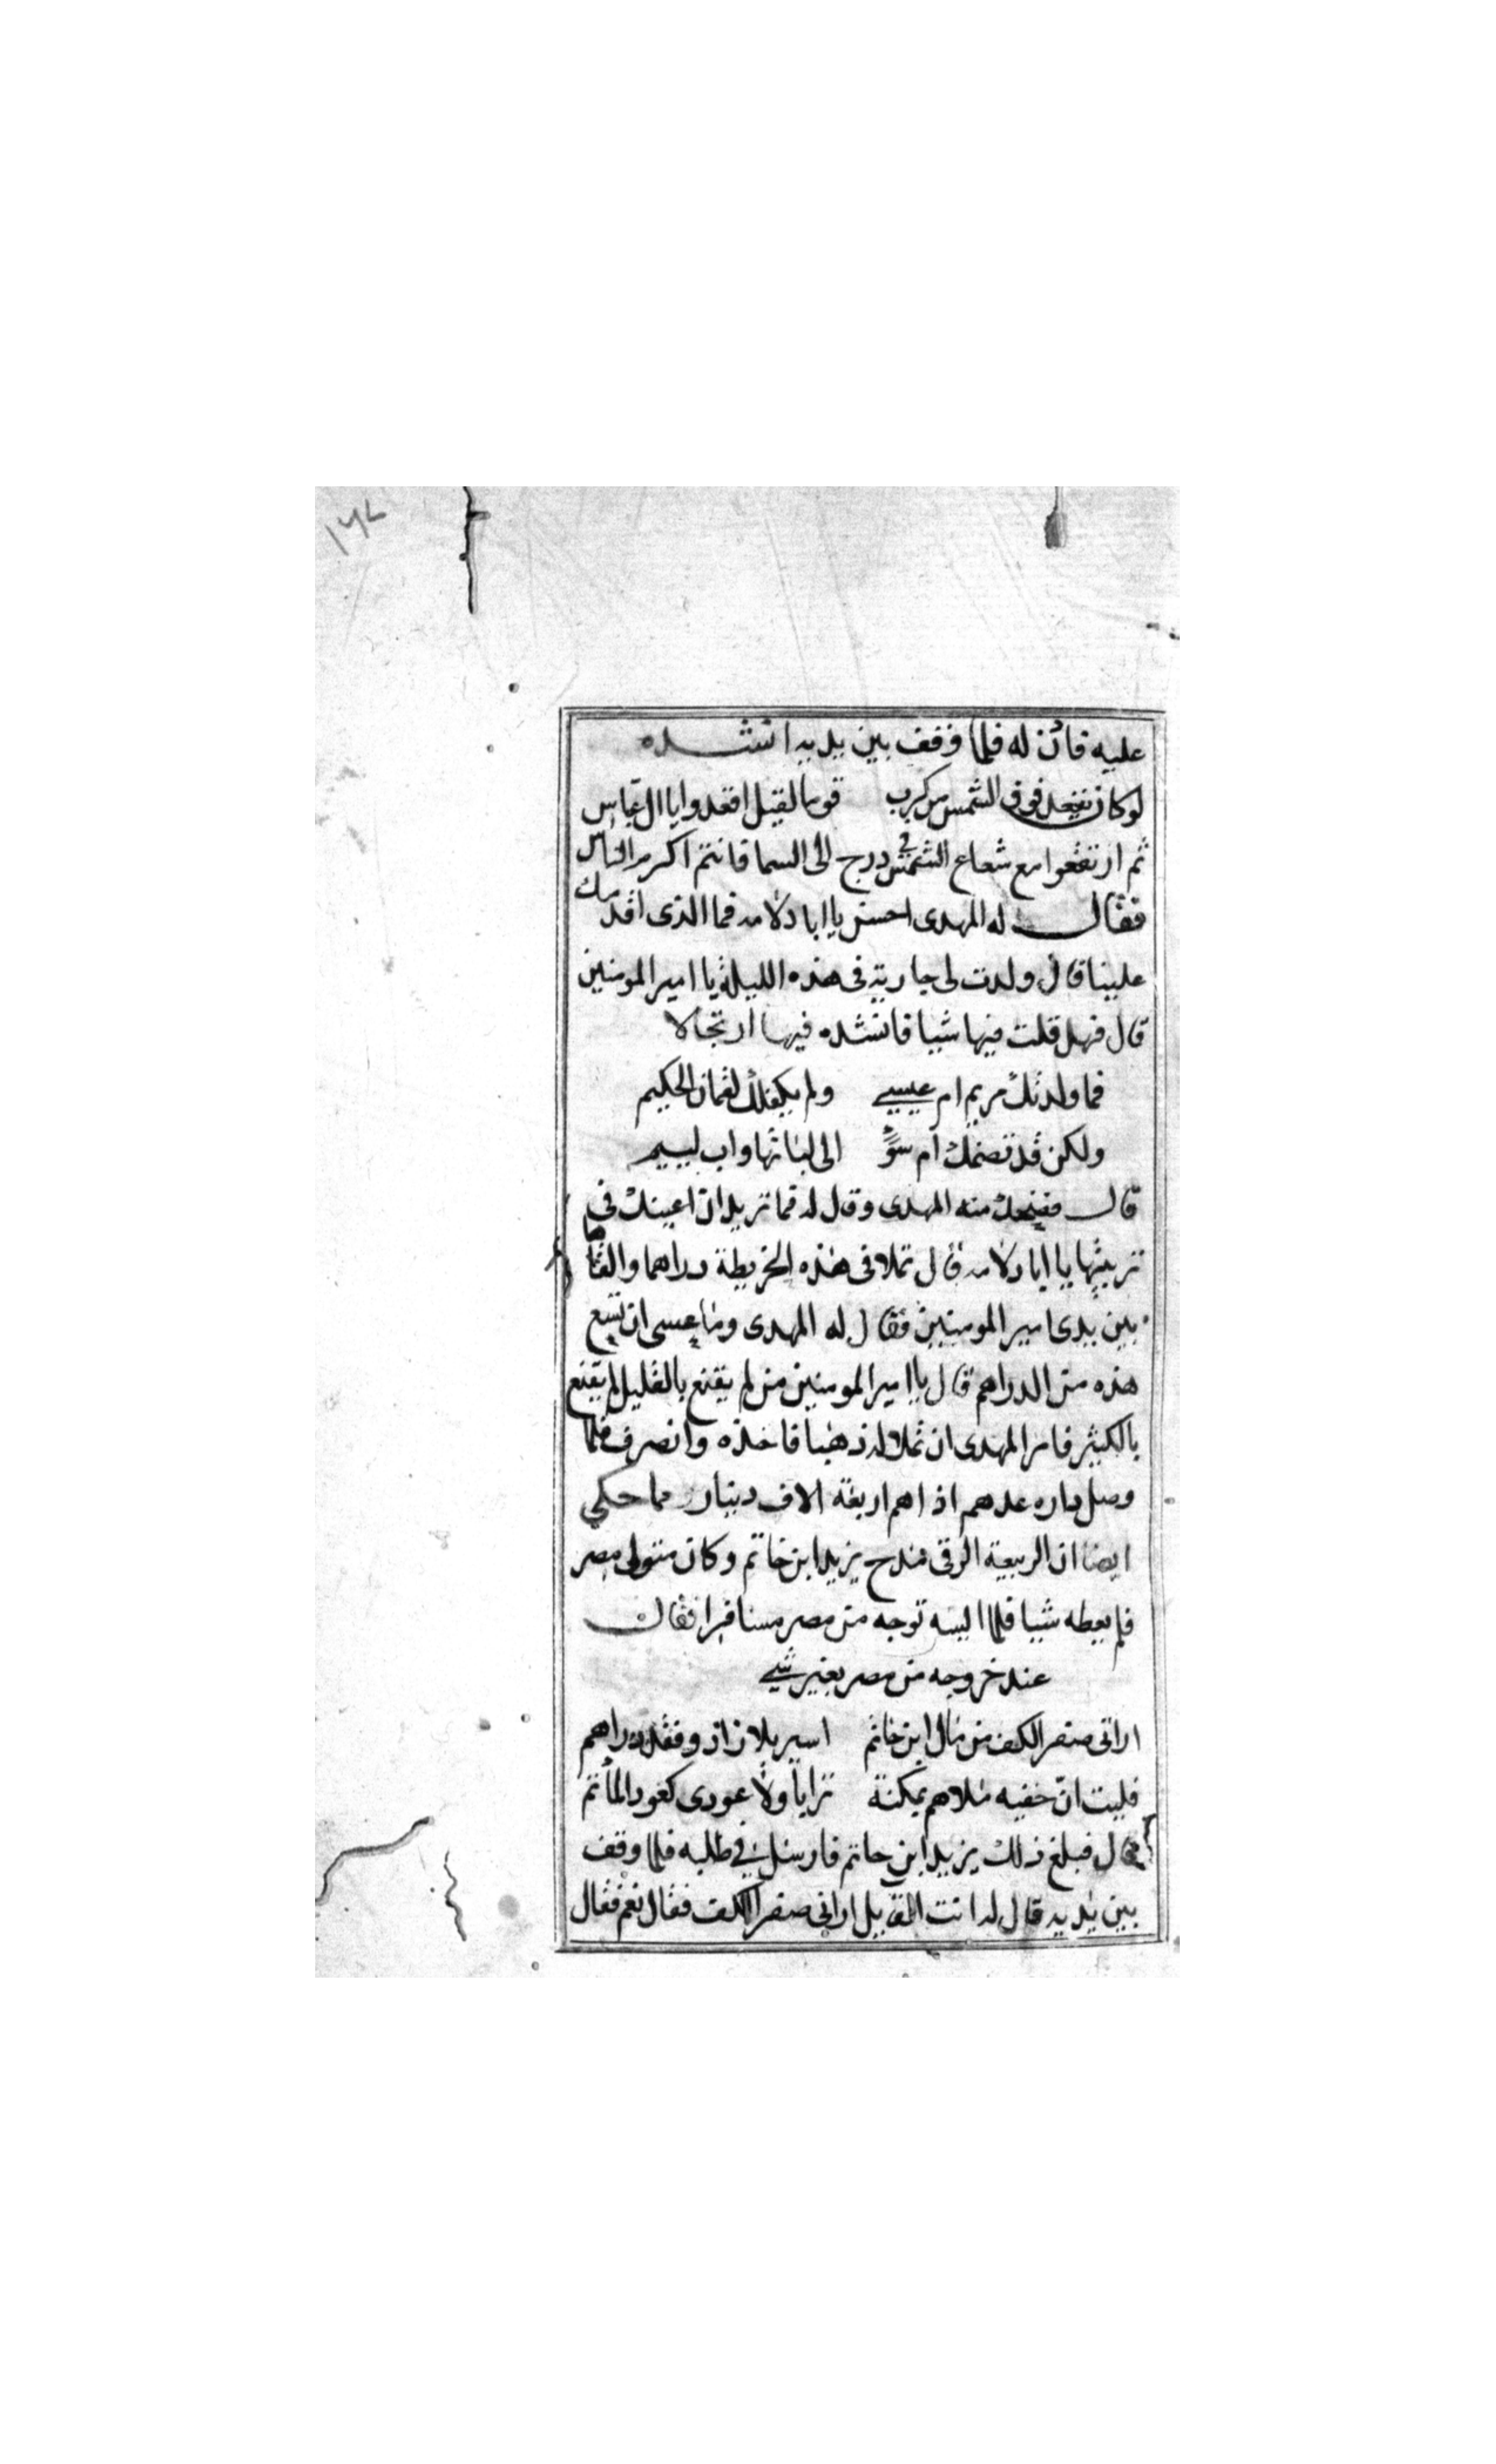 ١٧٢
عليه فاذن له فلما وقف بين يديه انشده
لو كان يقعد فوق الشمس من كرب قوما لقيل اقعدوا يا ال عباس
ثم ارتفعوا مع شعاع الشمس في درج الى السما فانتم اكرم الناس
فقال له المهدى احسنت يا ابا دلامه فما الذى اقدمك
علينا قال ولدت لى جارية فى هذه الليلة يا امير المومنين
قال فهل قلت فيها شيا فانشده فيها ارتجالا
فما ولدتك مريم ام عيسي ولم يكفلك لقمان الحكيم
ولكن قد تضمك ام سؤ الى لباتها واب ليم
قال فضحك منه المهدى وقال له فما تريد ان اعينك فى
تربيتها يا ابا دلامه قال تملا فى هذه الخريطة دراهما والقاها
بين يدى امير المومنين فقال له المهدى وما عسى ان تسع
هذه من الدراهم قال يا امير المومنين من لم يقنع بالقليل لم يقنع
بالكثير فامر المهدى ان تملا له ذهبا فاخذه وانصرف فلما
وصل داره عدهم اذا هم اربعة الاف دينار مما حكي
ايضا ان الربيعة الرقى مدح يزيد ابن حاتم وكان متولى مصر
فلم يعطه شييا فلما ايسه توجه من مصر مسافرا فقال
عند خروجه من مصر بغير شي
ارانى صفر الكف من مال ابن حاتم اسير بلا زاد وفقد دراهم
فليت ان خفيه ملاهم بمكنة ترابا ولا عودى كعود المأتم
قال فبلغ ذلك يزيد ابن حاتم فارسل في طلبه فلما وقف
بين يديه قال له انت القايل ارانى صفر الكف فقال نعم فقال